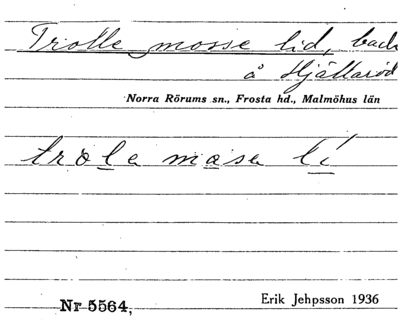 Trolle mosse lid, back
å Hjällaröd
Norra Rörums sn., Frosta hd., Malmöhus län
trola masa lí
Nr 5564,
Erik Jehpsson 1936